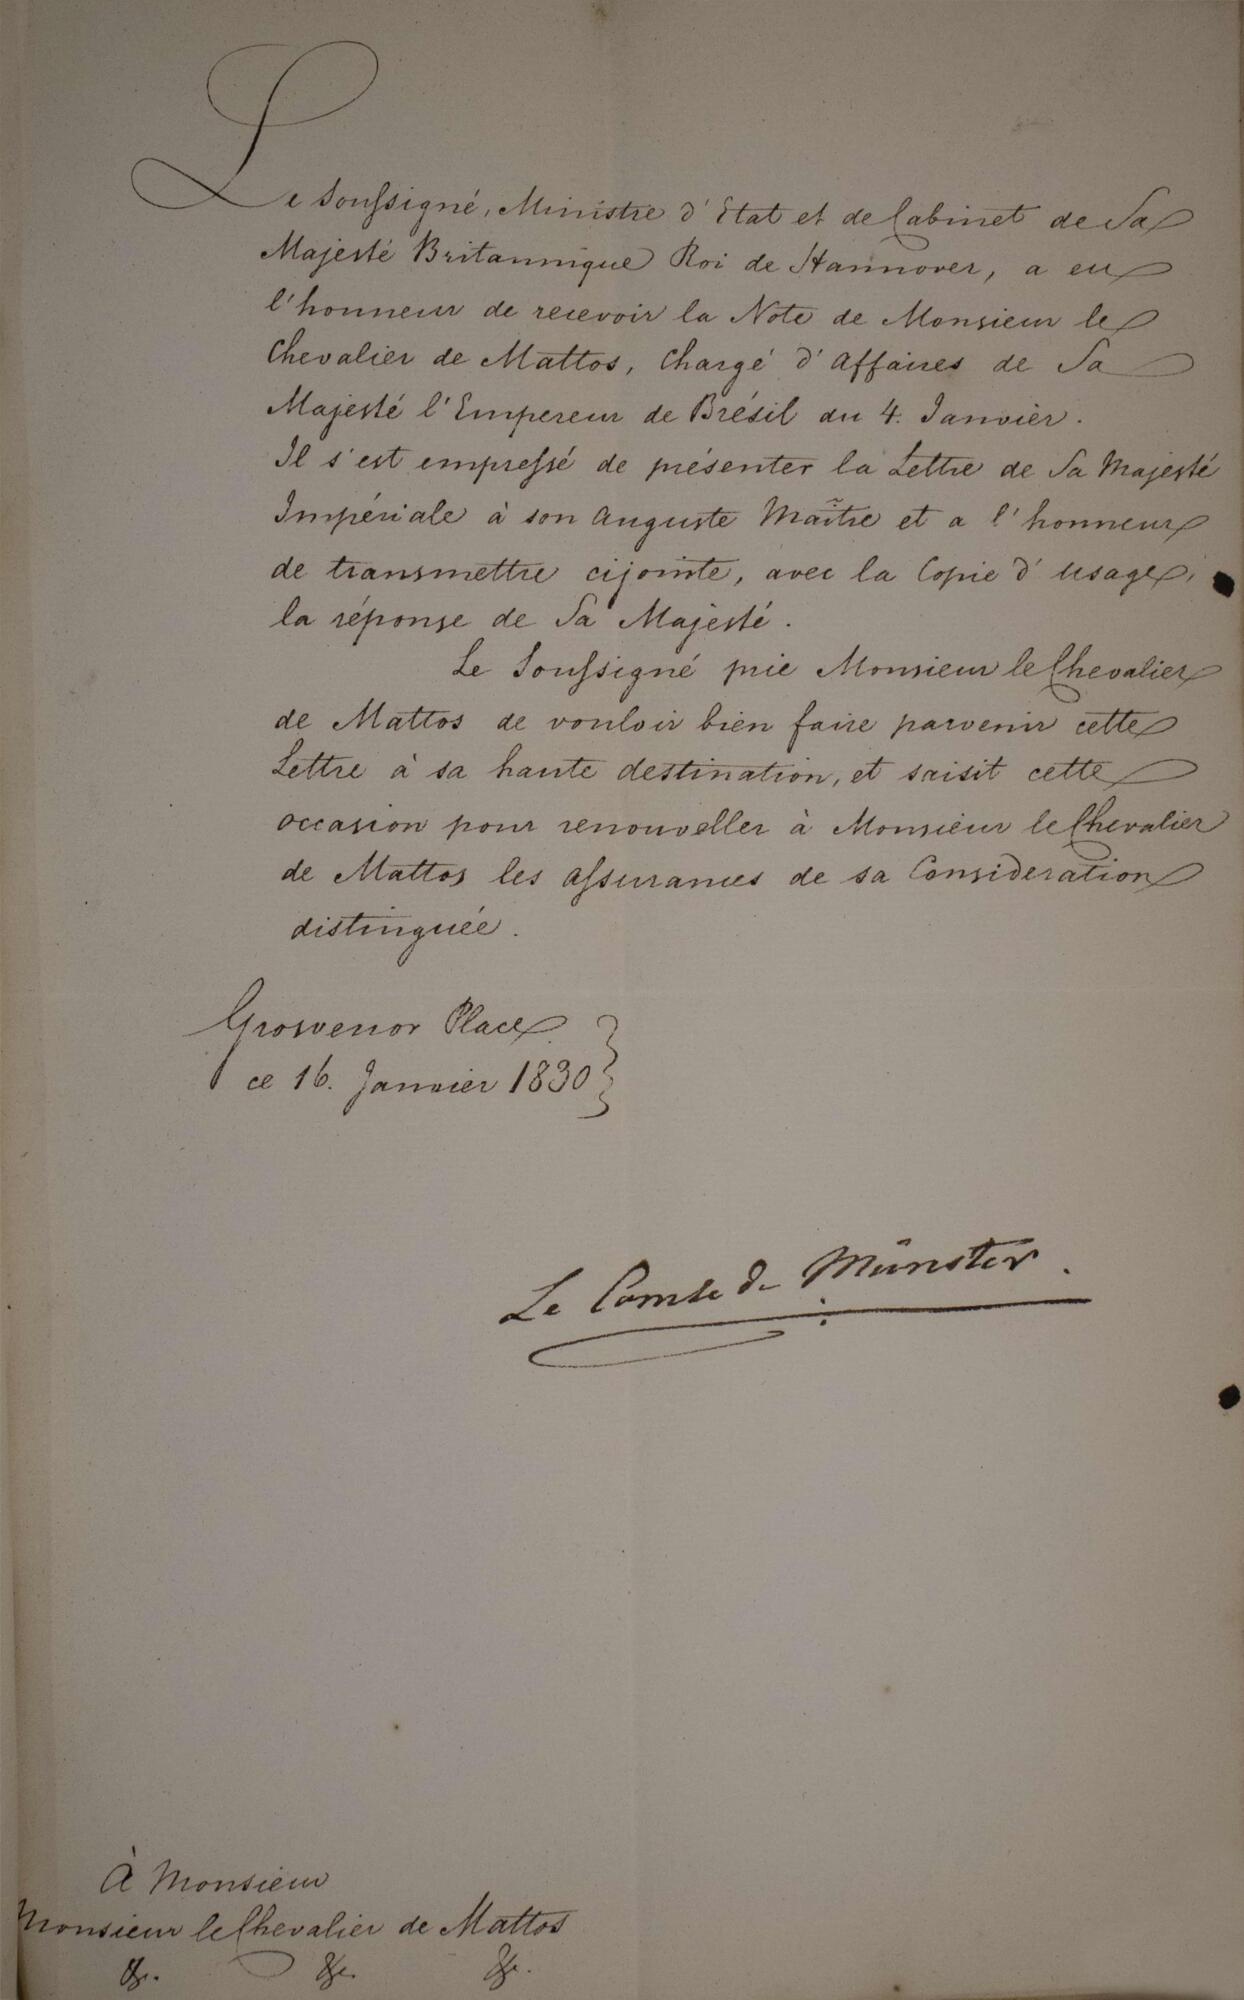 Le Soussigné, Ministre d'Etat et de Cabinet de Sa
Majesté Britannique Roi de Hannover, a eu
l'honneur de recevoir la Note de Monsieur le
Chevalier de Mattos, Chargé d'Affaires de Sa
Majesté l'Empereur de Brésil du 4. Janvier.
Il s'est empressé de présenter la Lettre de Sa Majesté
Impériale à son Auguste Maître et a l'honneur
de transmettre cijointe, avec la Copie d'usage,
la réponse de Sa Majesté.
Le Soussigné prie Monsieur le Chevalier
de Mattos de vouloir bien faire parvenir cette
Lettre à sa haute destination, et saisit cette
occasion pour renouveller à Monsieur le Chevalier
de Mattos les assurances de sa Consideration
distinguée.
Grosvenor Place
ce 16. Janvier 1830
Le Comte de Münster.
À Monsieur
Monsieur le Chevalier de Mattos
&c. &c. &c.